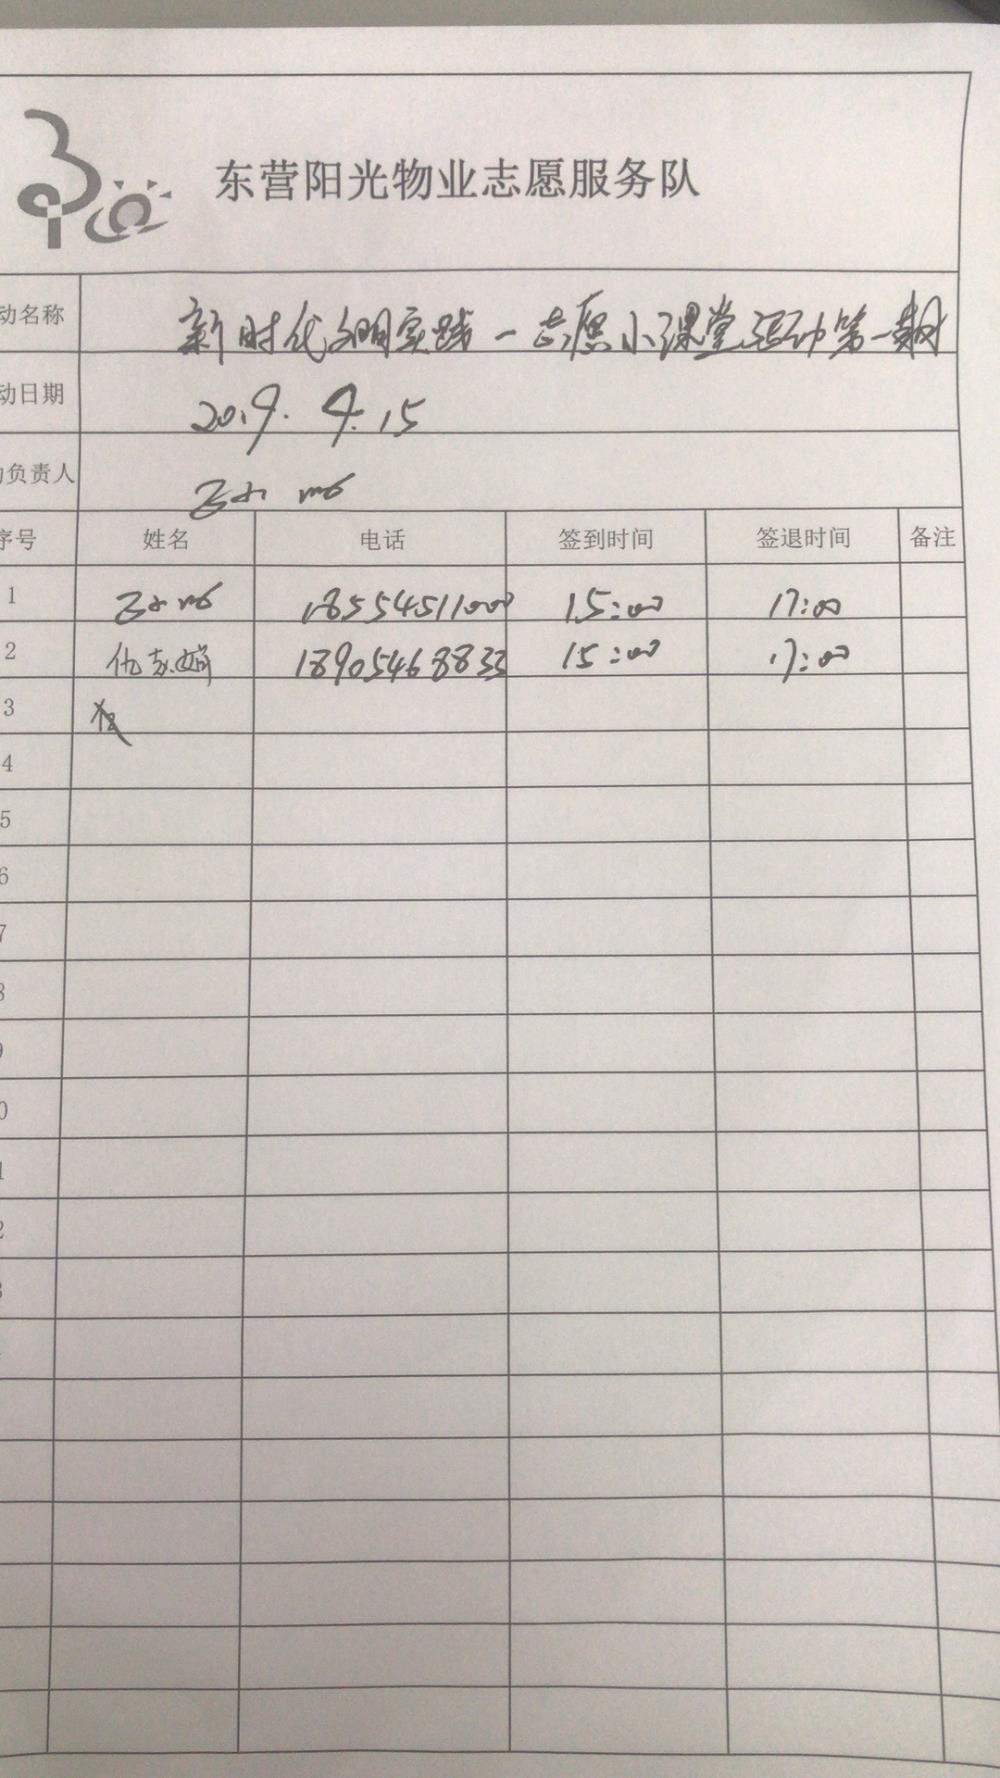 东营阳光物业志愿服务队
动名称 新时代文明实践一志愿小课堂活动第一期
动日期 2019.4.15
负责人
序号 姓名 电话 签到时间 签退时间 备注
1 18554511000 15:00 17:00
2 18905468833 15:00 17:00
3
4
5
6
7
8
9
0
1
2
3